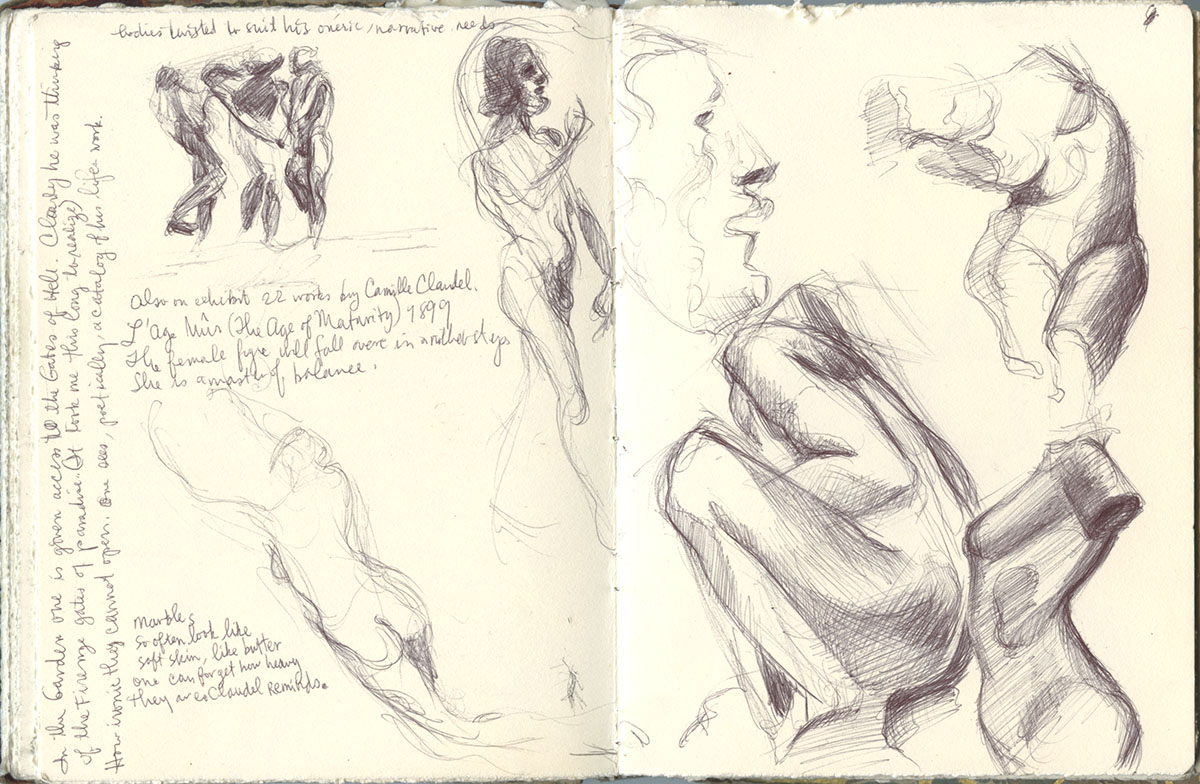 bodies twisted to suit his oneiric/narrative needs
In the Garden one is given access to the Gates of Hell. Clearly he was thinking
of the Firenze gates of paradise. (It took me this long to realize)
How ironic they cannot open. One sees, poetically a catalog of his life work.
Also on exhibit 22 works by Camille Claudel.
L'Age Mûr (The Age of Maturity) 1899
The female figure will fall over in another steps
She is a master of balance.
marbles
so often look like
soft skin, like butter
one can forget how heavy
they are Claudel Reminds.